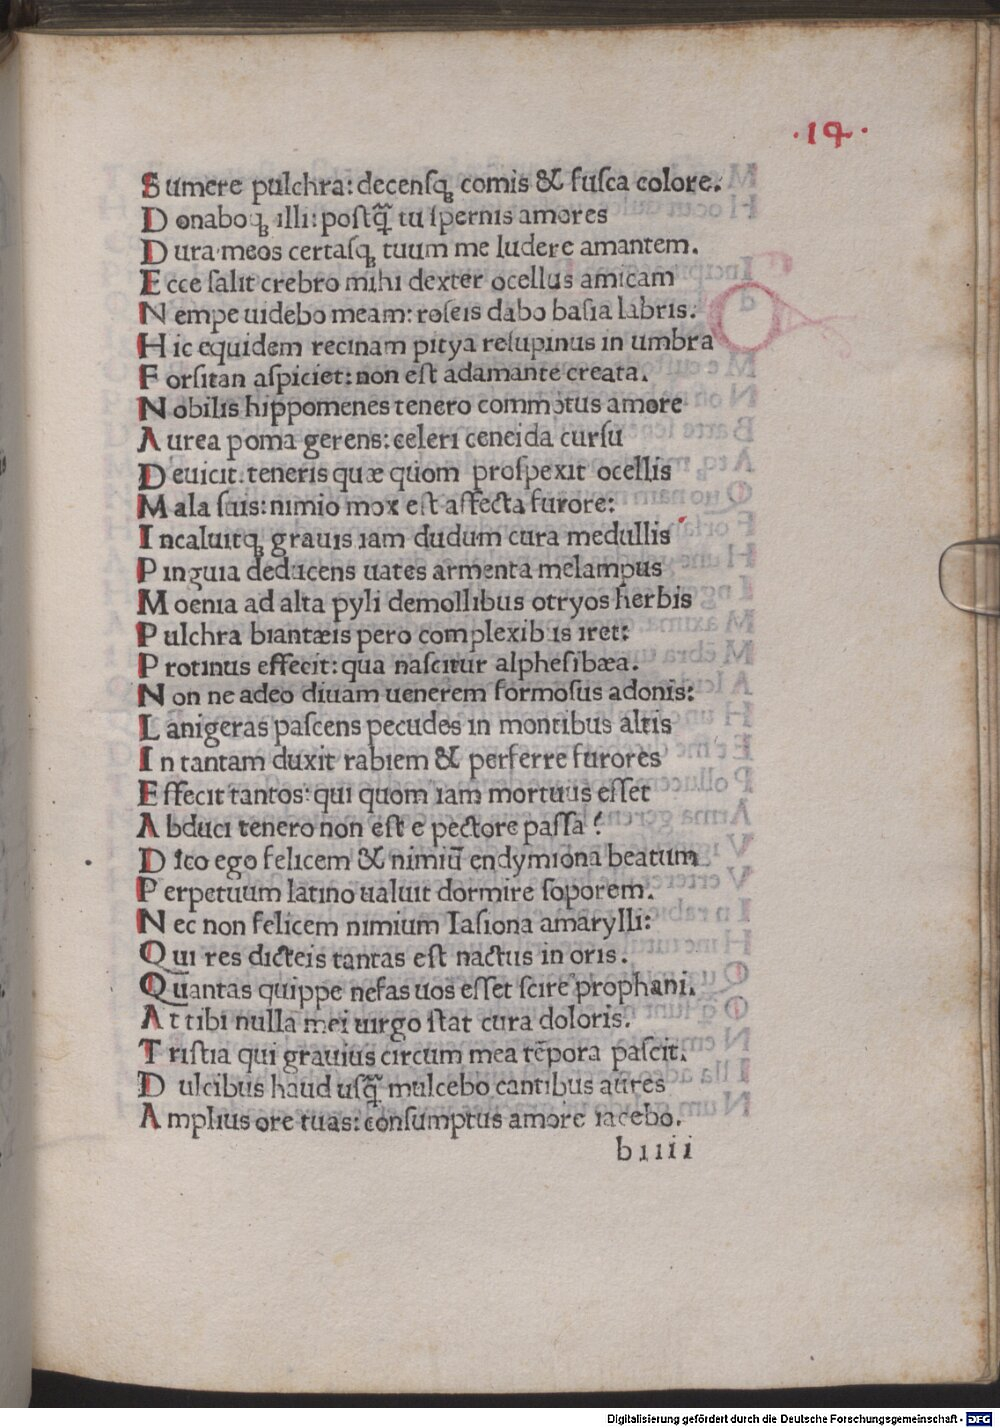 ·14·
S umere pulchra: decensqꝫ comis & fusca colore.
D onaboqꝫ illi: postq̃ꝫ tu spernis amores
D ura meos certasqꝫ tuum me ludere amantem.
E cce salit crebro mihi dexter ocellus amicam
N empe uidebo meam: roseis dabo basia labris:
H ic equidem recinam pitya resupinus in umbra
F orsitan aspiciet: non est adamante creata.
N obilis hippomenes tenero commotus amore
A urea poma gerens: celeri ceneida cursu
D euicit. teneris quæ quom prospexit ocellis
M ala suis: nimio mox est affecta furore:
I ncaluitqꝫ grauis iam dudum cura medullis
P inguia deducens uates armenta melampus
M oenia ad alta pyli demollibus otryos herbis
P ulchra biantæis pero complexibus iret:
P rotinus effecit: qua nascitur alphesibæa.
N on ne adeo diuam uenerem formosus adonis:
L anigeras pascens pecudes in montibus altis
I n tantam duxit rabiem & perferre furores
E ffecit tantos: qui quom iam mortuus esset
A bduci tenero non est e pectore passa?
D ico ego felicem & nimiū endymiona beatum
P erpetuum latino ualuit dormire soporem.
N ec non felicem nimium Iasiona amarylli:
Q ui res dicteis tantas est nactus in oris.
Q uantas quippe nefas uos esset scire prophani.
A t tibi nulla mei uirgo stat cura doloris.
T ristia qui grauius circum mea tēpora pascit.
D ulcibus haud usq̃ꝫ mulcebo cantibus aures
A mplius ore tuas: consumptus amore iacebo.
biiii
Digitalisierung gefördert durch die Deutsche Forschungsgemeinschaft - DFG